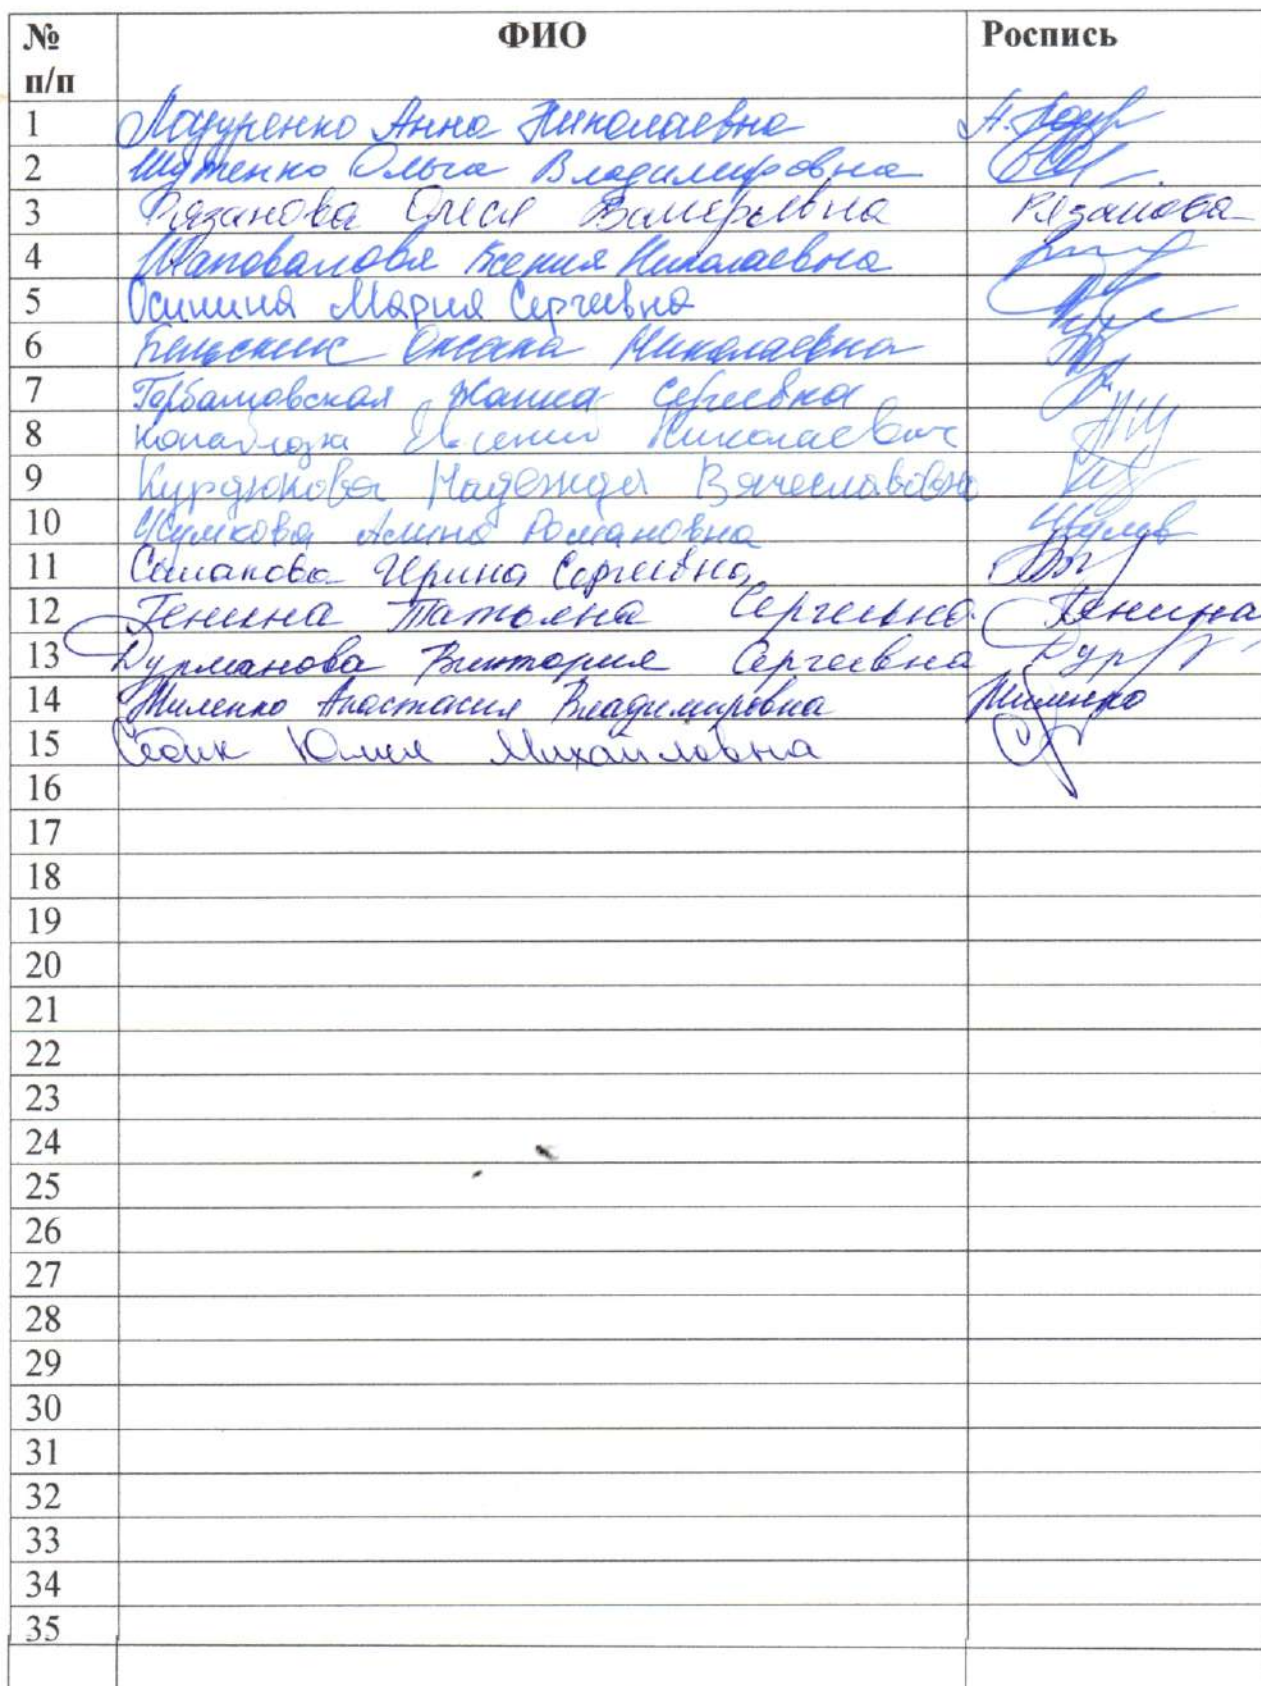 № п/п ФИО Роспись
1 Анна Николаевна
2 Шутенко Ольга Владимировна
3 Рязанова Олеся Валерьевна Рязанова
4 Шаповалова Ксения Николаевна
5 Осинина Мария Сергеевна
6 Оксана Николаевна
7 Жанна Сергеевна
8 Евгений Николаевич
9 Курдюкова Надежда Вячеславовна
10 Алина Романовна
11 Ирина Сергеевна
12 Генина Татьяна Сергеевна Генина
13 Дурманова Виктория Сергеевна
14 Жиленко Анастасия Владимировна Жиленко
15 Седик Юлия Михайловна
16
17
18
19
20
21
22
23
24
25
26
27
28
29
30
31
32
33
34
35